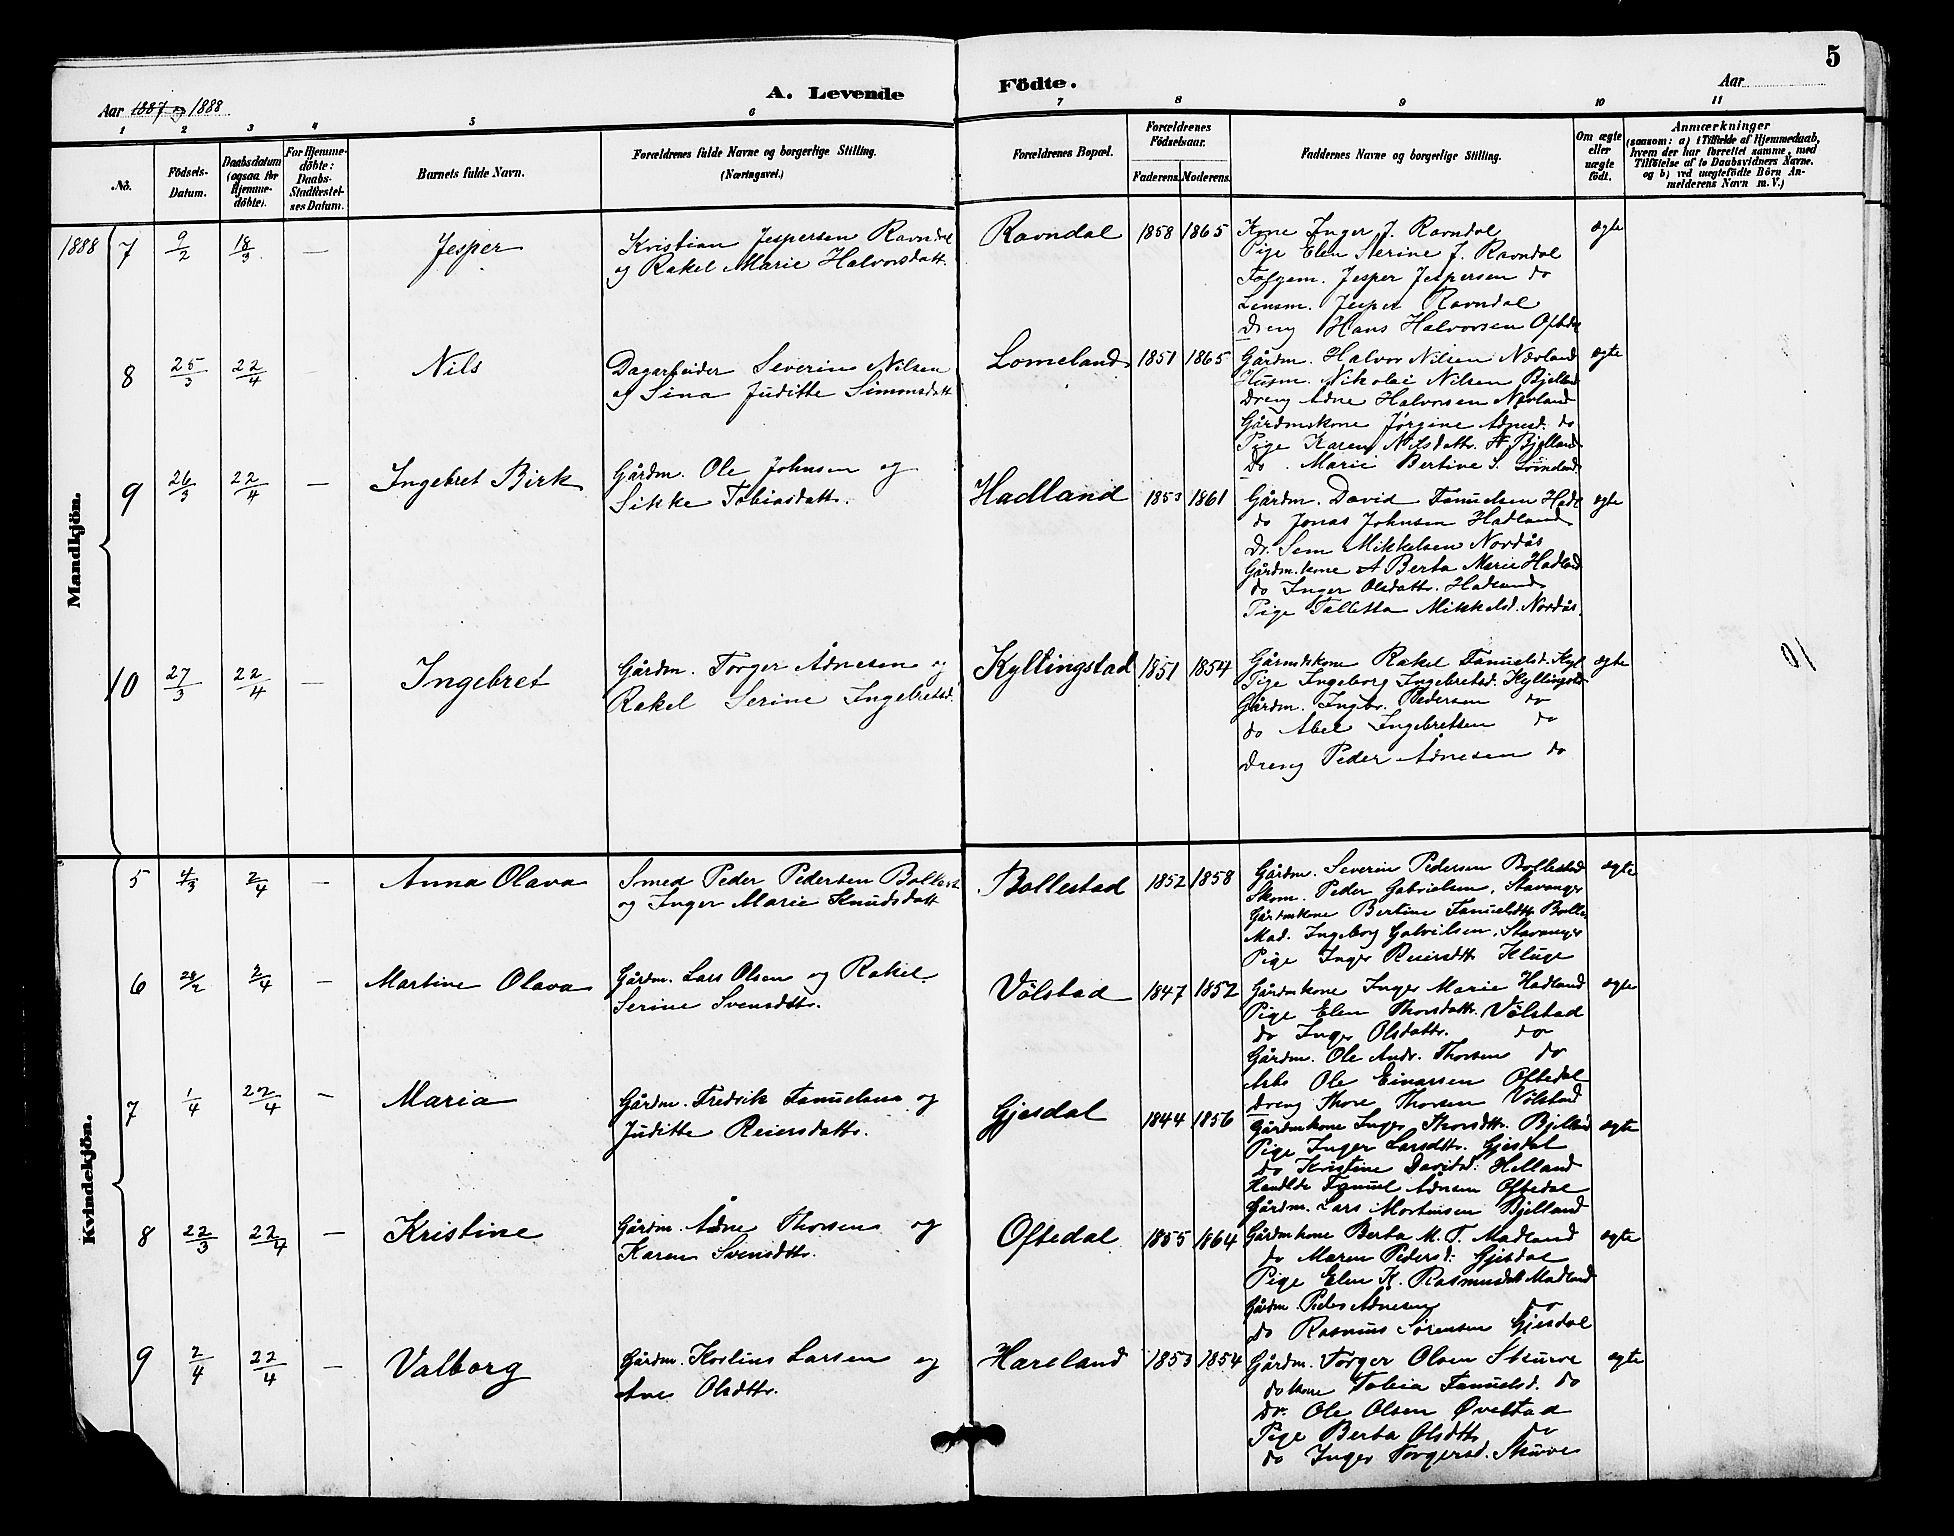 5
Aar 1887 og 1888
A. Levende Födte.
Aar
1 2 3 4 5 6 7 8 9 10 11
No.
Födsels-Datum.
Daabsdatum (ogsaa for Hjemme-döbte).
For Hjemme-döbte: Daabs-Stadfæstel-ses Datum.
Barnets fulde Navn.
Forældrenes fulde Navne og borgerlige Stilling. (Næringsvei.)
Forældrenes Bopæl.
Forældrenes Födselsaar.
Faderens. Moderens.
Faddernes Navne og borgerlige Stilling.
Om ægte eller uægte födt.
Anmærkninger
(saasom: a) i Tilfælde af Hjemmedaab, hvem der har forrettet samme, med Tilföielse af to Daabsvidners Navne. og b) ved uægtefödte Börn An-melderens Navn m. V.)
Mandkjön.
1888 7 9/2 18/3 — Jesper
Kristian Jespersen Ravndal
og Rakel Marie Halvorsdatt.
Ravndal 1858 1865
Kone Inger J. Ravndal
Pige Elen Serine J. Ravndal
Jesper Jespersen do
Lensm. Jesper Ravndal
Dreng Hans Halvorsen Oftedal
ægte
8 25/3 22/4 — Nils
Dagarbeider Severin Nilsen
og Sina Juditte Simonsdatt
Lomeland 1851 1865
Gårdm. Halvor Nilsen Nævland
Husm. Nikolai Nilsen Bjelland
Dreng Adne Halvorsen Nævland
Gårdmskone Jørgine Adnesd. do
Pige Karen Nilsdatt. Bjelland
do. Marie Bertine S.
ægte
9 26/3 22/4 — Ingebret Birk
Gårdm. Ole Johnsen og
Sikke Tobiasdatt.
Hadland 1853 1861
Gårdm. David Tanuelsen Hadl
do Jonas Johnsen Hadland
Dr. Sem Mikkelsen Nordås
Gårdm.kone A Berta Marie Hadland
do Inger Olsdatt. Hadland
Pige Talletta Mikkelsd. Nordås.
ægte
10 27/3 22/4 — Ingebret
Gårdm. Torger Ådnesen og
Rakel Serine Ingebretsd.
Kyllingstad 1851 1854
Gårmdskone Rakel Tanuelsd. Kyl
Pige Ingeborg Ingebretsd. Kyllingstad
Gårdm. Ingbr. Pedersen do
do Abel Ingebretsen do
Dreng Peder Ådnesen do
ægte
Kvindekjön.
5 4/3 2/4 — Anna Olava
Smed Peder Pedersen Bollest
og Inger Marie Knudsdatt
Bollestad 1852 1858
Gårdm. Severin Pedersen Bollestad
Skom. Peder Gabrielsen, Stavanger
Gårdmkone Bertine Tanuelsdtt. Bolle.
Mad. Ingeborg Gabrielsen, Stavanger
Pige Inger Reiersdtt. Kluge
ægte
6 28/2 2/4 — Martine Olava
Gårdm. Lars Olsen og Rakel
Serine Svensdtt.
Vølstad 1847 1852
Gårdmkone Inger Marie Hadland
Pige Elen Thorsdatt. Vølstad
do Inger Olsdatt. do
Gårdm. Ole Andr. Thorsen do
Arb. Ole Einarsen Oftedal
Dreng Thore Thorsen Vølstad
ægte
7 1/4 22/4 — Maria
Gårdm. Fredrik Tanuelsen og
Juditte Reiersdatt.
Gjesdal 1844 1856
Gårdmkone Inger Thorsdtt. Bjelland
Pige Inger Larsdtt. Gjesdal
do Kristine Davidsd. Helland
Handlde Tanuel Adnesen Oftedal
Gårdm. Lars Mortensen Bjelland
ægte
8 22/3 22/4 — Kristine
Gårdm. Ådne Thorsen og
Karen Svensdtt.
Oftedal 1855 1864
Gårdmkone Berta M. T. Madland
do Maren Pedersd. Gjesdal
Pige Elen K. Rasmusdt Madland
Gårdm. Peder Adnesen do
do Rasmus Sørensen Gjesdal
ægte
9 2/4 22/4 — Valborg
Gårdm. Kostius Larsen og
Ane Olsdtt.
Hareland 1853 1854
Gårdm. Torger Olsen Skurve
do kone Tobia Tanuelsd. do
Dr. Ole Olsen Øvestad
Pige Berta Olsdtt. do
do Inger Torgersd. Skurve
ægte